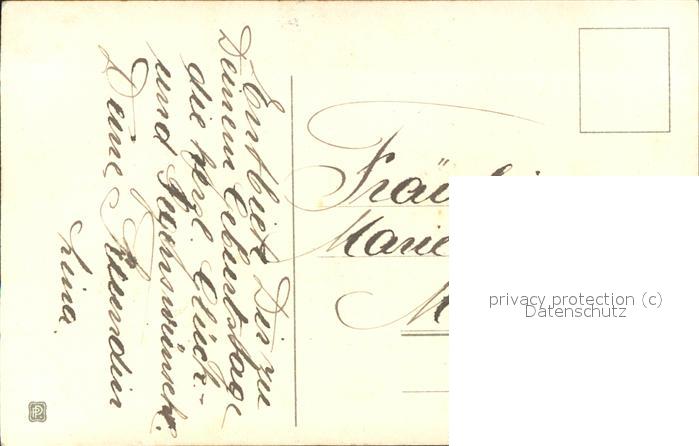 Entbiete Dir zu
Deinem Geburtstage
die herzl. Glück-
und Segenswünsche.
Deine Freundin
Lina.
Fräulein
Marie
M
privacy protection (c)
Datenschutz